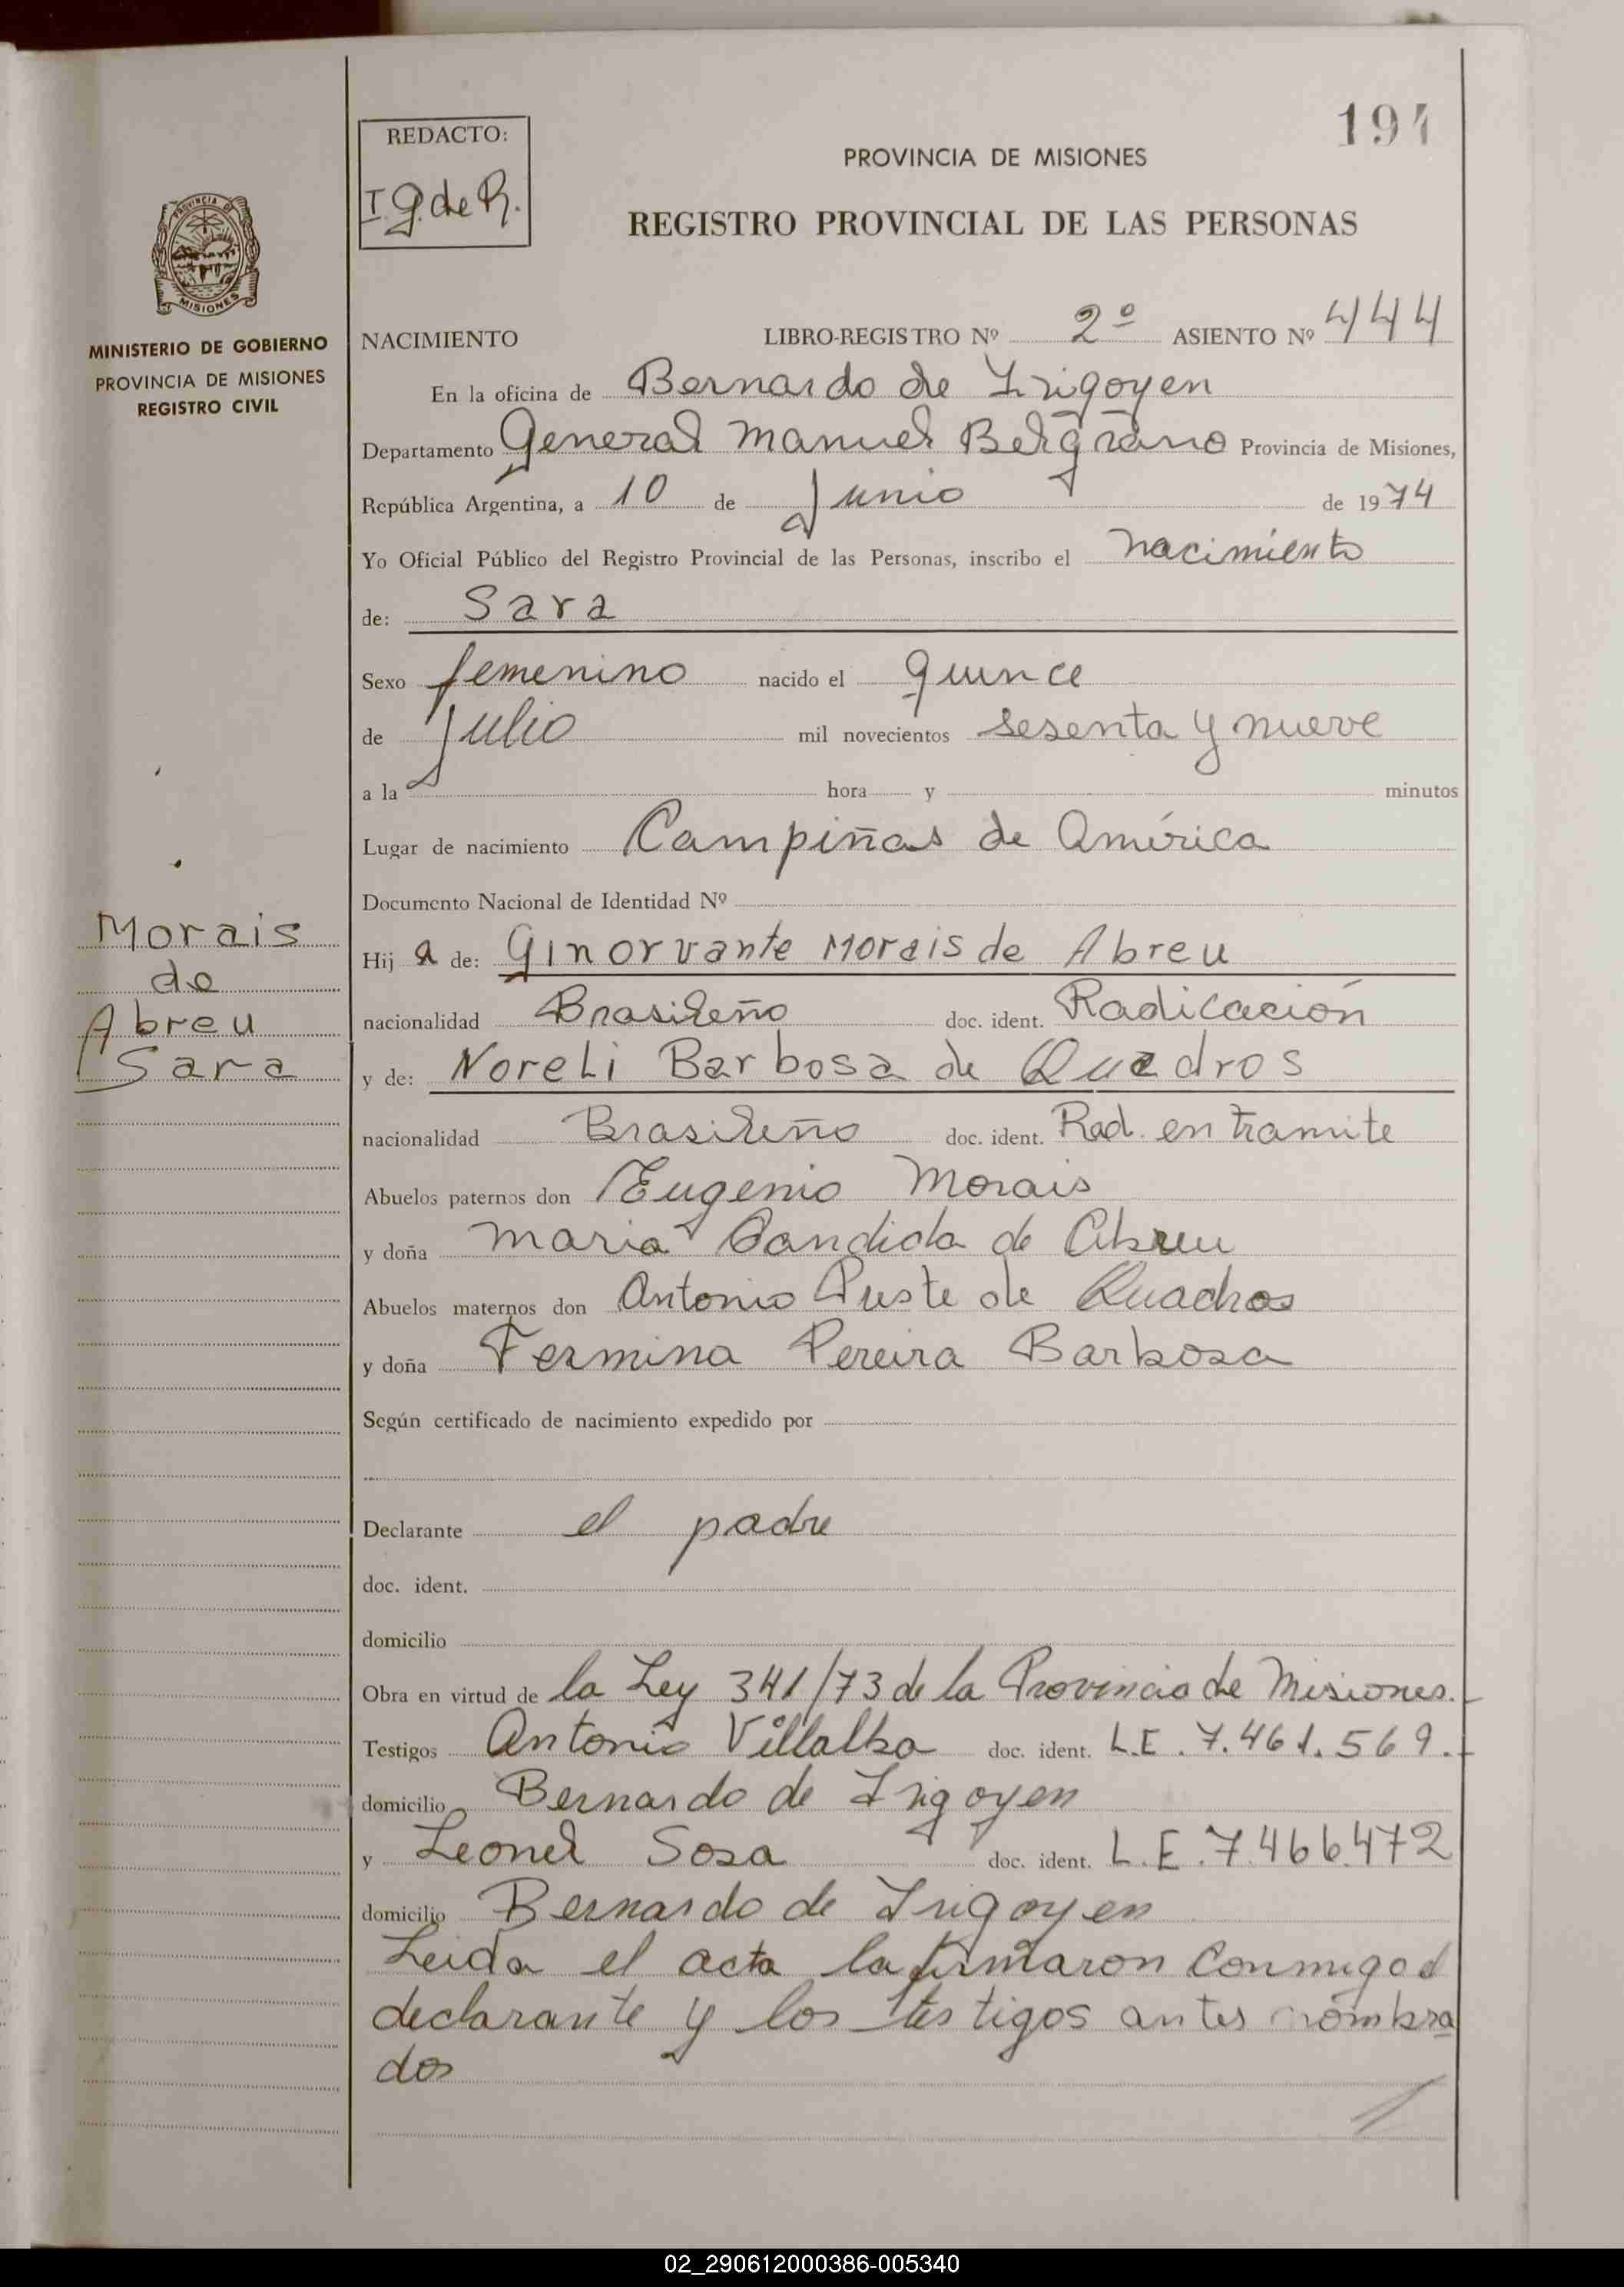 194
REDACTO:
I. G. de R.
PROVINCIA DE MISIONES
REGISTRO PROVINCIAL DE LAS PERSONAS
PROVINCIA DE
MISIONES
MINISTERIO DE GOBIERNO
PROVINCIA DE MISIONES
REGISTRO CIVIL
NACIMIENTO LIBRO-REGISTRO Nº 2º ASIENTO Nº 444
En la oficina de Bernardo de Irigoyen
Departamento General Manuel Belgrano Provincia de Misiones,
República Argentina, a 10 de Junio de 1974
Yo Oficial Público del Registro Provincial de las Personas, inscribo el nacimiento
de: Sara
Sexo femenino nacido el quince
de Julio mil novecientos sesenta y nueve
a la hora y minutos
Lugar de nacimiento Campiñas de América
Documento Nacional de Identidad Nº
Morais
de
Abreu
Sara
Hij a de: Ginorvante Morais de Abreu
nacionalidad Brasileño doc. ident. Radicación
y de: Noreli Barbosa de Quadros
nacionalidad Brasileño doc. ident. Rad. en tramite
Abuelos paternos don Eugenio Morais
y doña Maria Candida de Abreu
Abuelos maternos don Antonio de Quadros
y doña Fermina Pereira Barbosa
Según certificado de nacimiento expedido por
Declarante el padre
doc. ident.
domicilio
Obra en virtud de la Ley 341/73 de la Provincia de Misiones.
Testigos Antonio Villalba doc. ident. L.E. 7.461.569.
domicilio Bernardo de Irigoyen
y Leonel Sosa doc. ident. L.E. 7.466.472
domicilio Bernardo de Irigoyen
Leida el acta la firmaron conmigo el
declarante y los testigos antes nombra
dos
02_290612000386-005340